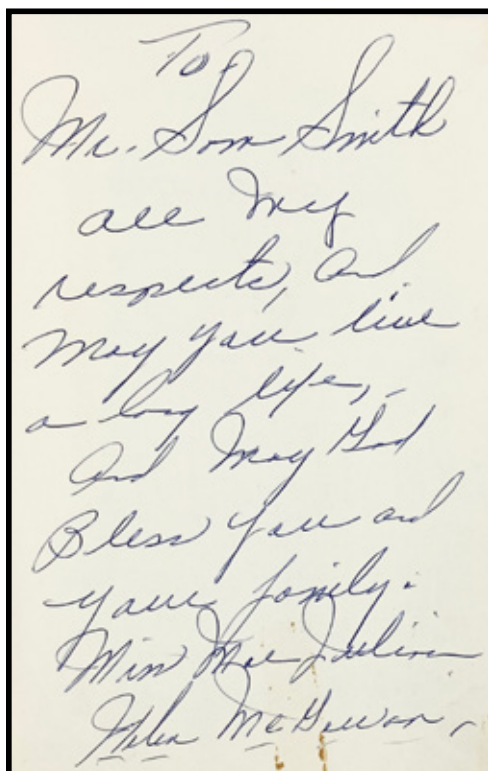 To
Mr. Sam Smith
all my
respects, and
May you live
a long life,
And May God
Bless You and
your family.
Mae
Helen McGowan,